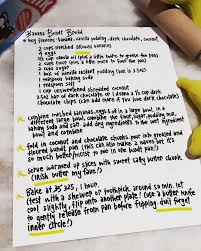 Banana Bundt Bread
key flavors: banana, vanilla pudding, dark chocolate, coconut
2 cups mashed bananas
4 eggs
2/3 cup canola oil (plus a little butter to grease the pan)
2 cups flour (plus a little more to dust the pan)
1 cup sugar
1 box of vanilla instant pudding
2 tsp baking soda
1/2 tsp salt
1 cup unsweetened shredded coconut
1 bar of dark chocolate, chopped or about 1 cup of dark
chocolate chips (can add more if you love dark chocolate)
combine mashed bananas, eggs, oil in a large bowl. in a
different large bowl, combine the flour, sugar, pudding mix,
baking soda and salt. add dry ingredients to the wet ingredient
bowl and combine
fold in coconut and chocolate chunks. pour into greased and
floured bundt pan (this can also make 2 loaves but it's
so much better/moist to me in the bundt pan)
serve warmed up slices with sweet salty butter chunks
(Irish butter my fave!)
Bake at 325, 1 hour
(test with a skewer or toothpick around 50 min. let
cool slightly, flip onto another plate! use a butter knife
to gently release from pan before flipping don't forget
inner circle!)